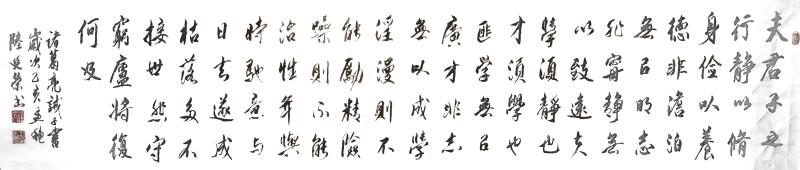 夫君子之
行静以脩
身俭以養
德非澹泊
無以明志
非寧静無
以致遠夫
學須静也
才須學也
匪學無以
廣才非志
無以成學
淫漫則不
能勵精險
躁則不能
治性年與
時馳意与
日去遂成
枯落多不
接世悲守
窮廬將復
何及
諸葛亮誡子書
歲次己亥孟穐
陸榮書